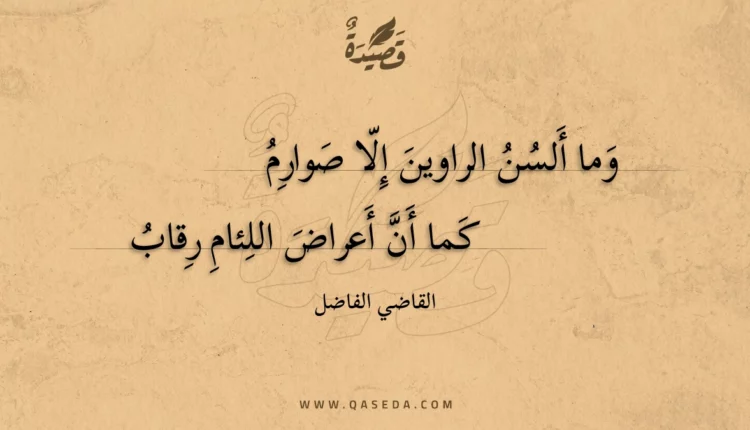 قَصِيدَةٌ
وَما أَلسُنُ الراوينَ إِلّا صَوارِمُ
كَما أَنَّ أَعراضَ اللِئامِ رِقابُ
القاضي الفاضل
WWW.QASEDA.COM